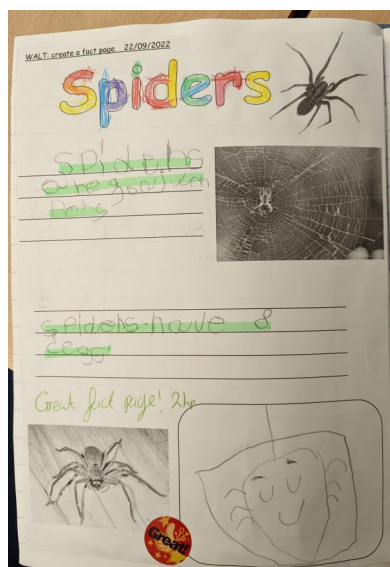 WALT: create a fact page 22/09/2022
Spiders
Spiders
are
spiders have 8
Great fact page! 2hp
Great!